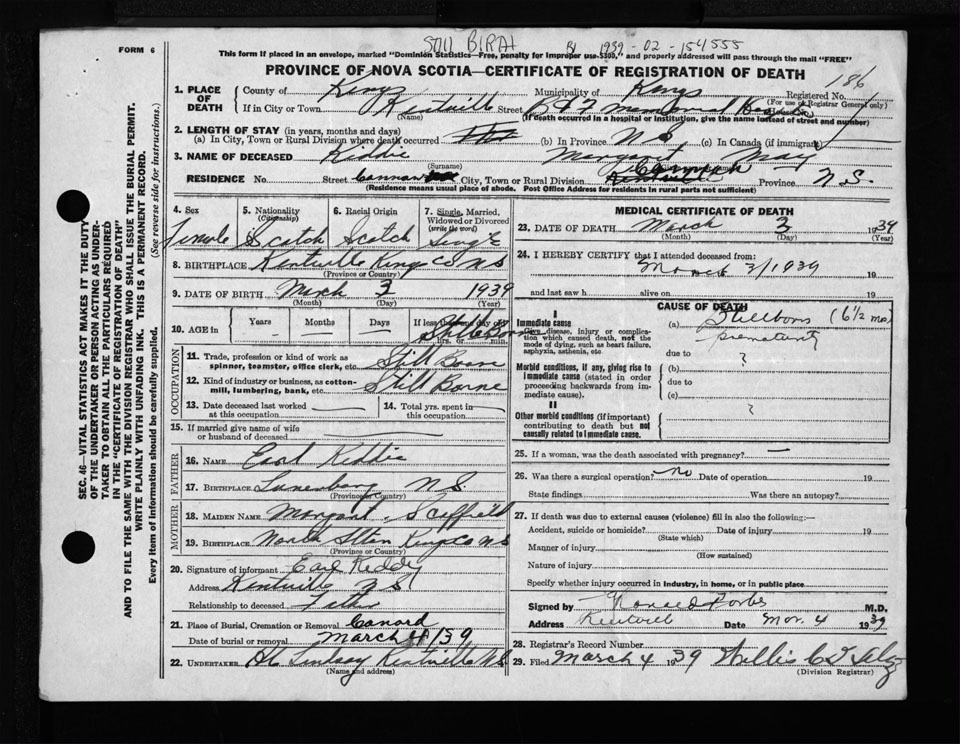 FORM 6
STILL BIRTH 1939-02-154555
This form if placed in an envelope, marked "Dominion Statistics—Free, penalty for improper use $300," and properly addressed will pass through the mail "FREE"
PROVINCE OF NOVA SCOTIA—CERTIFICATE OF REGISTRATION OF DEATH
186
1. PLACE OF DEATH County of Kings Municipality of Kings Registered No.
(For use of Registrar General only)
If in City or Town Kentville Street B & F Memorial Hospital
(Name) (If death occurred in a hospital or institution, give the name instead of street and number)
2. LENGTH OF STAY (in years, months and days)
(a) In City, Town or Rural Division where death occurred (b) In Province N S (c) In Canada (if immigrant)
3. NAME OF DECEASED Kiddie Margaret May
(Surname)
RESIDENCE No. Street City, Town or Rural Division Province N.S.
(Residence means usual place of abode. Post Office Address for residents in rural parts not sufficient)
4. Sex Female
5. Nationality (Citizenship) Scotch
6. Racial Origin Scotch
7. Single, Married, Widowed or Divorced (write the word) Single
8. BIRTHPLACE Kentville Kings Co N S
(Province or Country)
9. DATE OF BIRTH March 3 1939
(Month) (Day) (Year)
10. AGE in Years Months Days If less than one day old
Still Born
hrs. or min.
OCCUPATION
11. Trade, profession or kind of work as spinner, teamster, office clerk, etc. Still Borne
12. Kind of industry or business, as cotton-mill, lumbering, bank, etc. Still Borne
13. Date deceased last worked at this occupation
14. Total yrs. spent in this occupation
15. If married give name of wife or husband of deceased
FATHER
16. NAME Earl Kiddie
17. BIRTHPLACE Lunenburg N.S.
(Province or Country)
MOTHER
18. MAIDEN NAME Margaret Scoffield
19. BIRTHPLACE North Kings Co N S
(Province or Country)
20. Signature of informant Earl Keddy
Address Kentville N S
Relationship to deceased Father
21. Place of Burial, Cremation or Removal Canard
Date of burial or removal March 4/39
22. UNDERTAKER Lindsay Kentville N S
(Name and address)
MEDICAL CERTIFICATE OF DEATH
23. DATE OF DEATH March 3 1939
(Month) (Day) (Year)
24. I HEREBY CERTIFY that I attended deceased from:
March 3/1939 19
and last saw h alive on 19
CAUSE OF DEATH
I
Immediate cause
Give disease, injury or complication which caused death, not the mode of dying, such as heart failure, asphyxia, asthenia, etc
(a) Stillborn (6½ mos)
prematurity
due to ?
Morbid conditions, if any, giving rise to immediate cause (stated in order proceeding backwards from immediate cause).
(b)
due to
(c)
II
Other morbid conditions (if important) contributing to death but not causally related to immediate cause.
?
25. If a woman, was the death associated with pregnancy? —
26. Was there a surgical operation? no Date of operation 19
State findings Was there an autopsy?
27. If death was due to external causes (violence) fill in also the following:—
Accident, suicide or homicide? Date of injury 19
(State which)
Manner of injury
(How sustained)
Nature of injury
Specify whether injury occurred in industry, in home, or in public place
Signed by Forbes M.D.
Address Kentville Date Mar. 4 1939
28. Registrar's Record Number
29. Filed March 4 1939 Willis
(Division Registrar)
SEC. 46—VITAL STATISTICS ACT MAKES IT THE DUTY
OF THE UNDERTAKER OR PERSON ACTING AS UNDERTAKER TO OBTAIN ALL THE PARTICULARS REQUIRED
IN THE "CERTIFICATE OF REGISTRATION OF DEATH"
AND TO FILE THE SAME WITH THE DIVISION REGISTRAR WHO SHALL ISSUE THE BURIAL PERMIT.
WRITE PLAINLY WITH UNFADING INK. THIS IS A PERMANENT RECORD.
Every item of information should be carefully supplied. (See reverse side for instructions.)